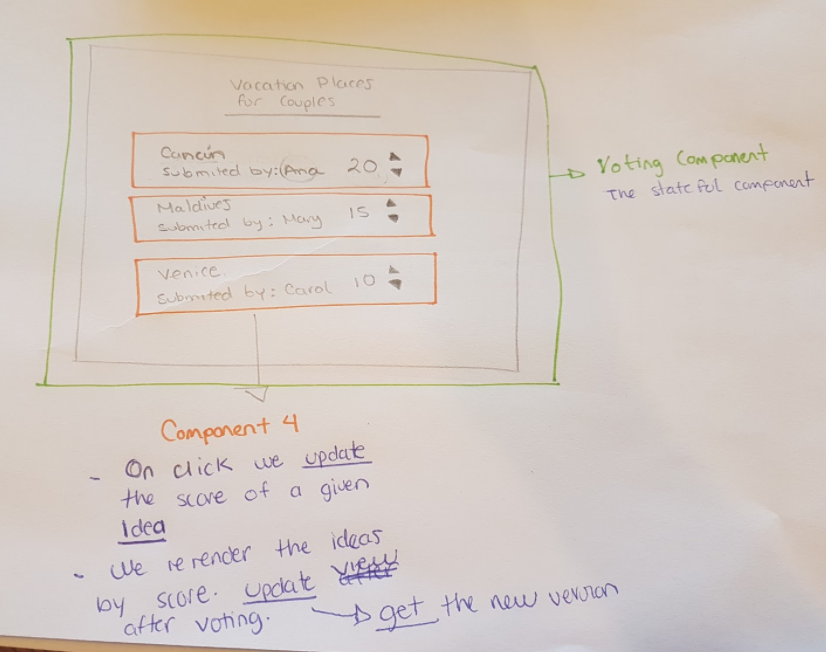 Vacation Places
for Couples
Cancún
Submited by: Ana 20
Maldives
Submited by: Mary 15
Venice.
Submited by: Carol 10
Voting Component
The stateful component
Component 4
- On click we update
the score of a given
Idea
- We rerender the ideas
by score. update view
after voting.
get the new version